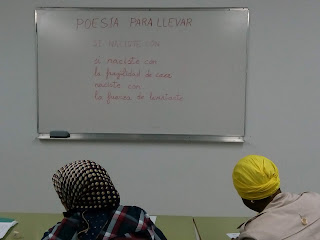 POESÍA PARA LLEVAR
si naciste con
la fragilidad de caer
naciste con
la fuerza de levantarte